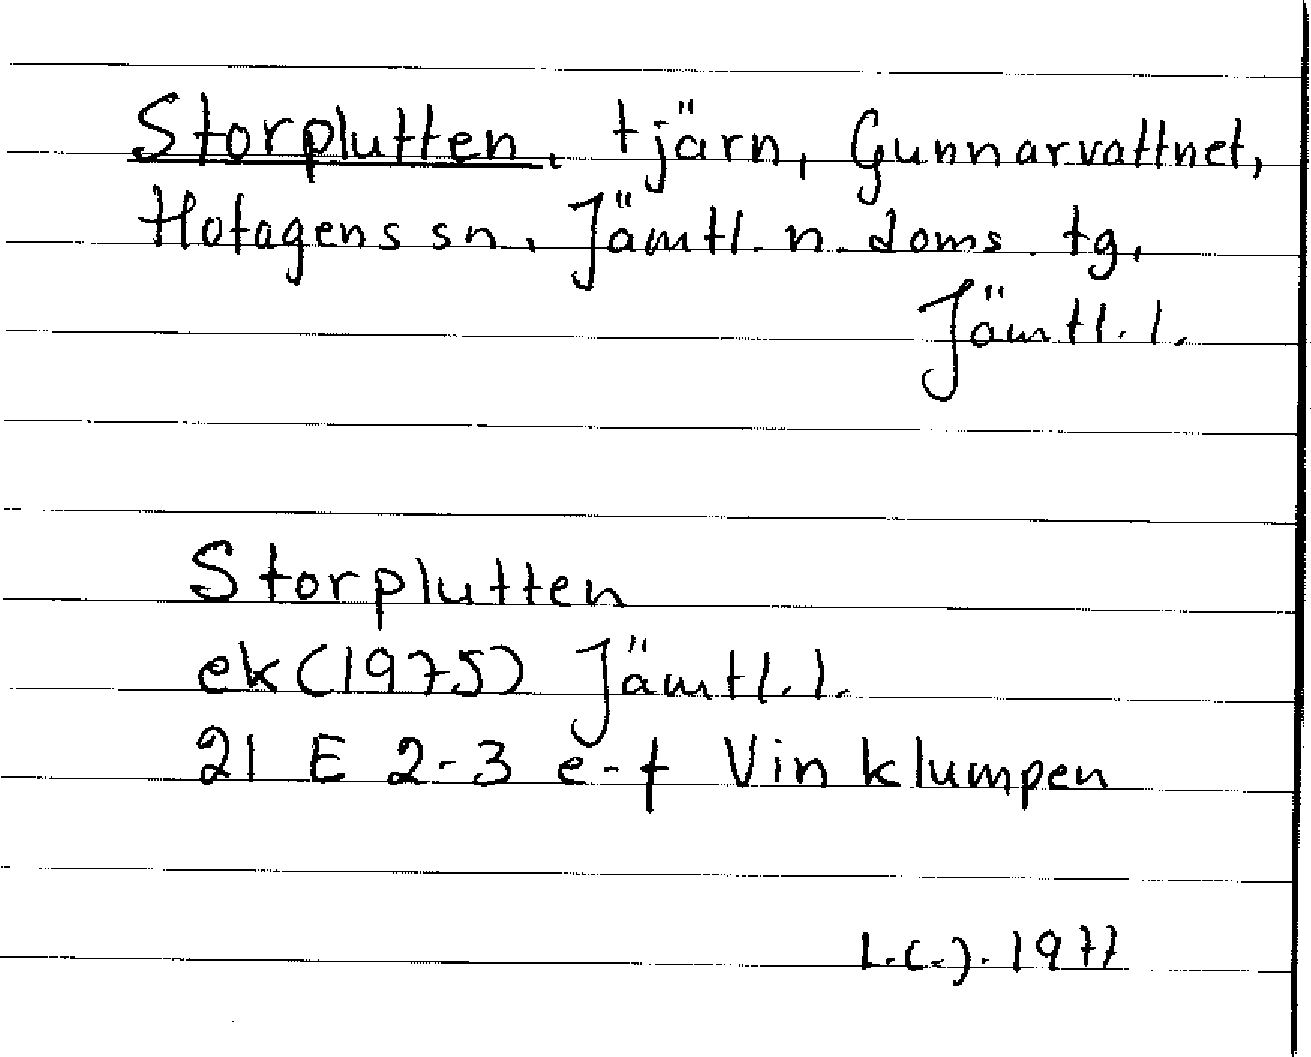 Storplutten, tjärn, Gunnarvattnet,
Hotagens sn, Jämtl. n. doms. tg,
Jämtl. l.
Storplutten
ek (1975) Jämtl. l.
21 E 2-3 e-f Vinklumpen
1977